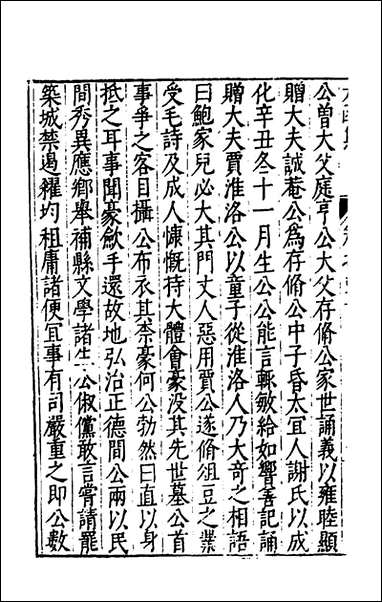 公曽大父庭亨公大父存脩公家世誦義以雍睦顯
贈大夫誠菴公爲存脩公中子昏太宜人謝氏以成
化辛丑冬十一月生公公能言輒敏給如響善記誦
贈大夫賈淮洛公以童子從淮洛人乃大奇之相語
曰鮑家兒必大其門丈人惡用賈公遂脩俎豆之業
受毛詩及成人慷慨持大體會豪没其先世墓公首
事爭之客目攝公布衣其柰豪何公勃然曰直以身
抵之耳事聞豪歛手還故地弘治正德間公兩以民
間秀異應鄉舉補縣文學諸生公俶儻敢言甞請罷
築城禁遏糴均租庸諸便宜事有司嚴重之即公數